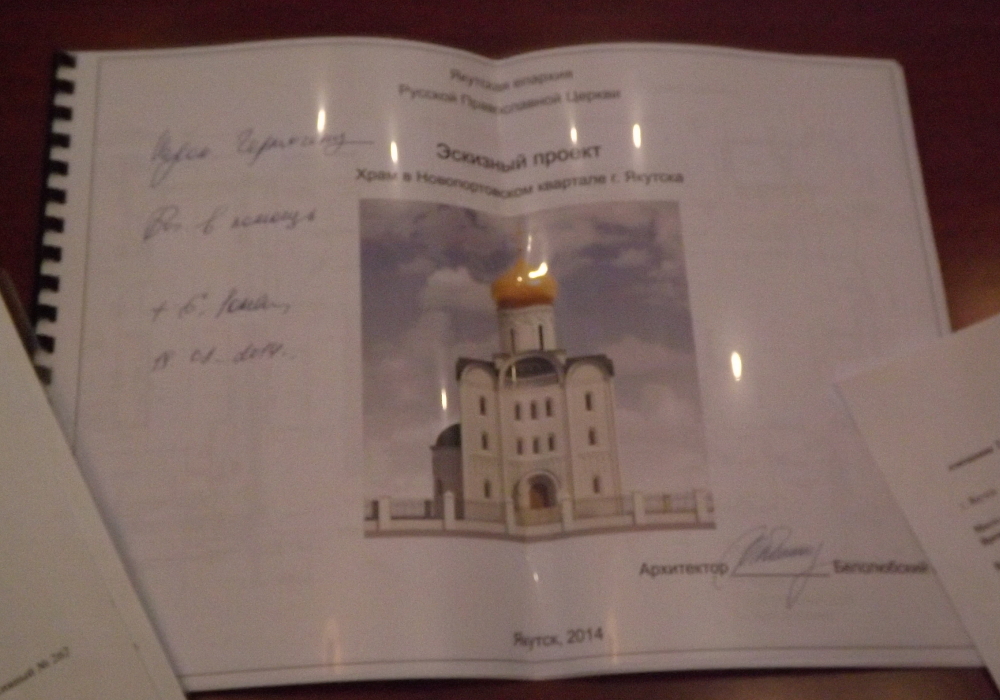 Якутская епархия
Русской Православной Церкви
Эскизный проект
Храм в Новопортовском квартале г. Якутска
Бог в помощь
Архитектор Белолюбский
Якутск, 2014
№ 262